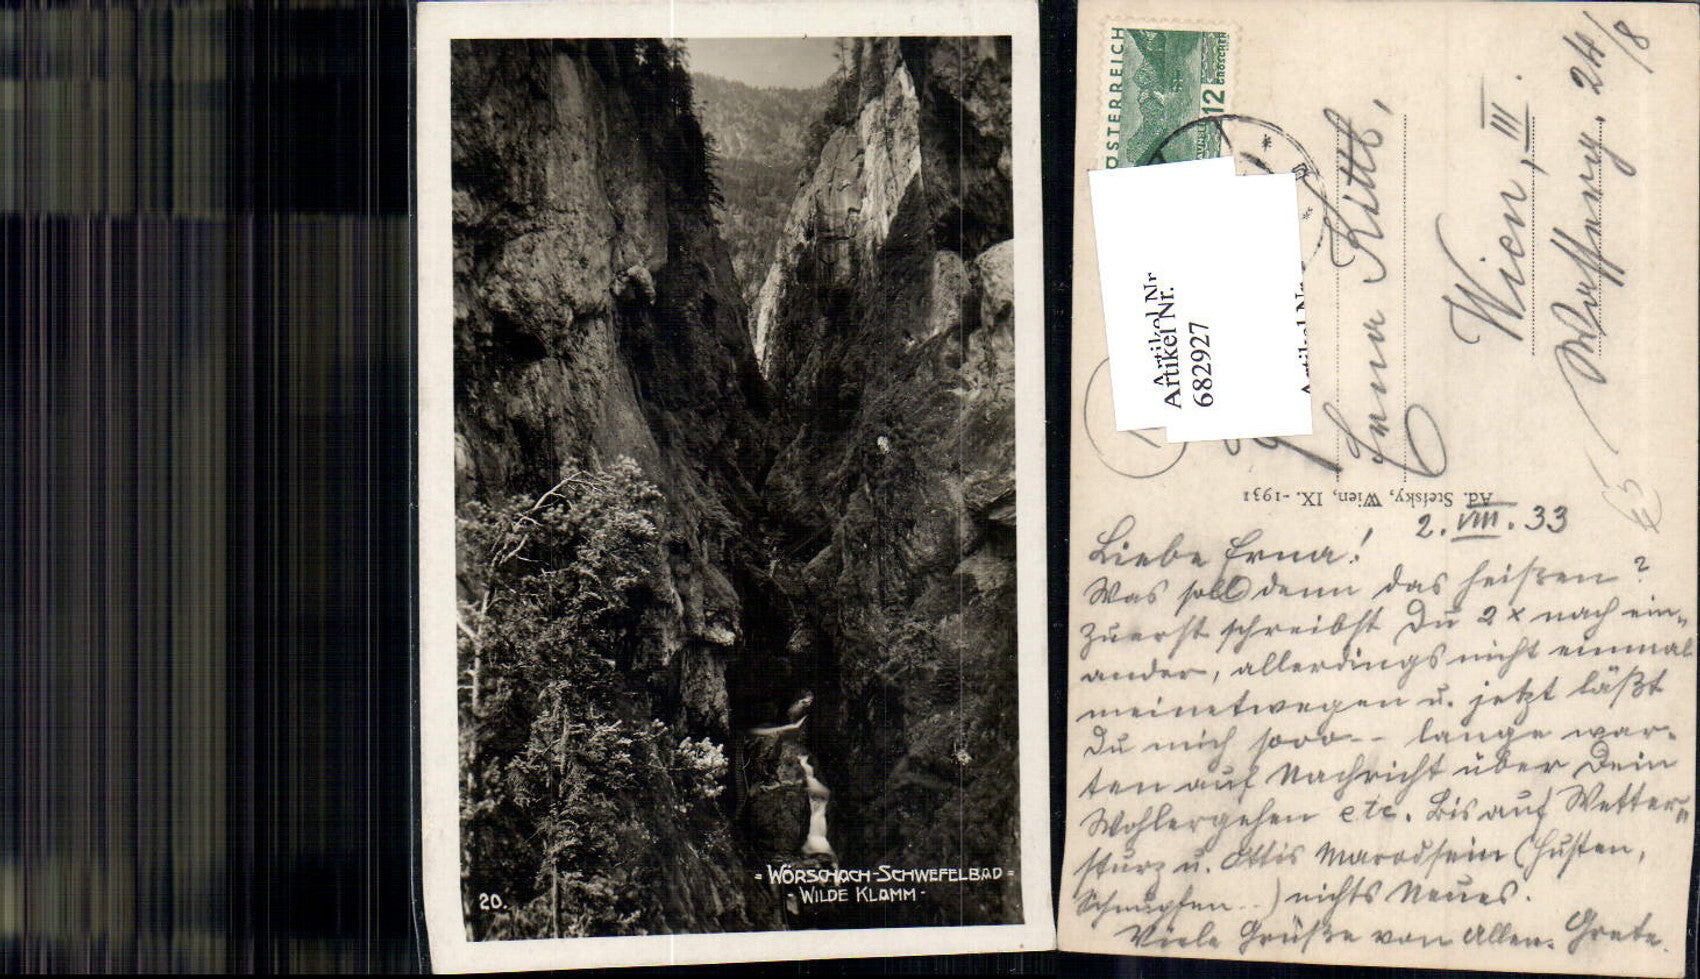 = WÖRSCHACH-SCHWEFELBAD =
- WILDE KLAMM -
20.
ÖSTERREICH
12
GROSCHEN
Artikel Nr
Artikel Nr.
682927
Artikel Nr
Erna Kittl,
Wien, III.
24/8
Ad. Stefsky, Wien, IX.-1931
2. VIII. 33
Liebe Erna!
Was soll denn das heißen?
Zuerst schreibst Du 2x nach ein-
ander, allerdings nicht einmal
meinetwegen u. jetzt läßt
Du mich sooo-- lange war-
ten auf Nachricht über Dein
Wohlergehen etc. Bis auf Wetter-
sturz u. Ottis Marodsein (Husten,
Schnupfen..) nichts Neues.
Viele Grüße von Allen. Grete.